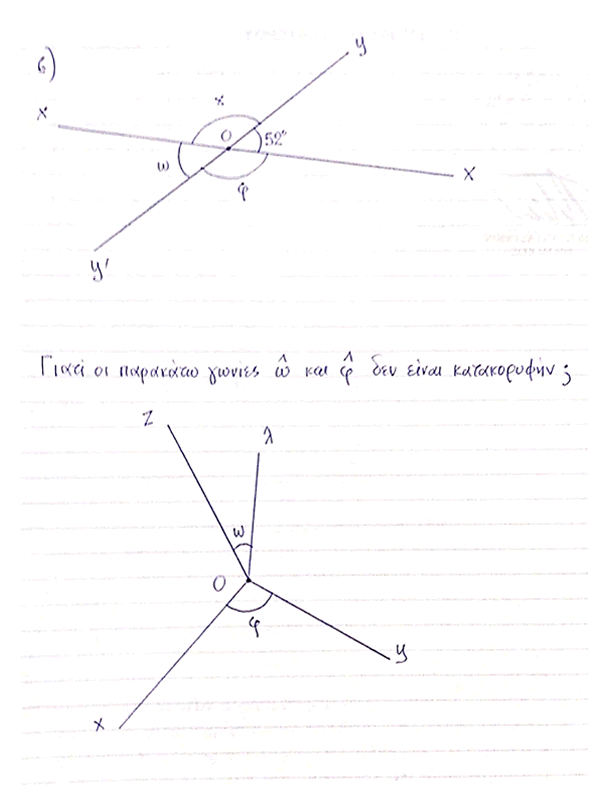 6)
y
x
x
O
52°
ω
φ̂
x
y'
Γιατί οι παρακάτω γωνίες ω̂ και φ̂ δεν είναι κατακορυφήν ;
z
λ
ω
O
φ
y
x